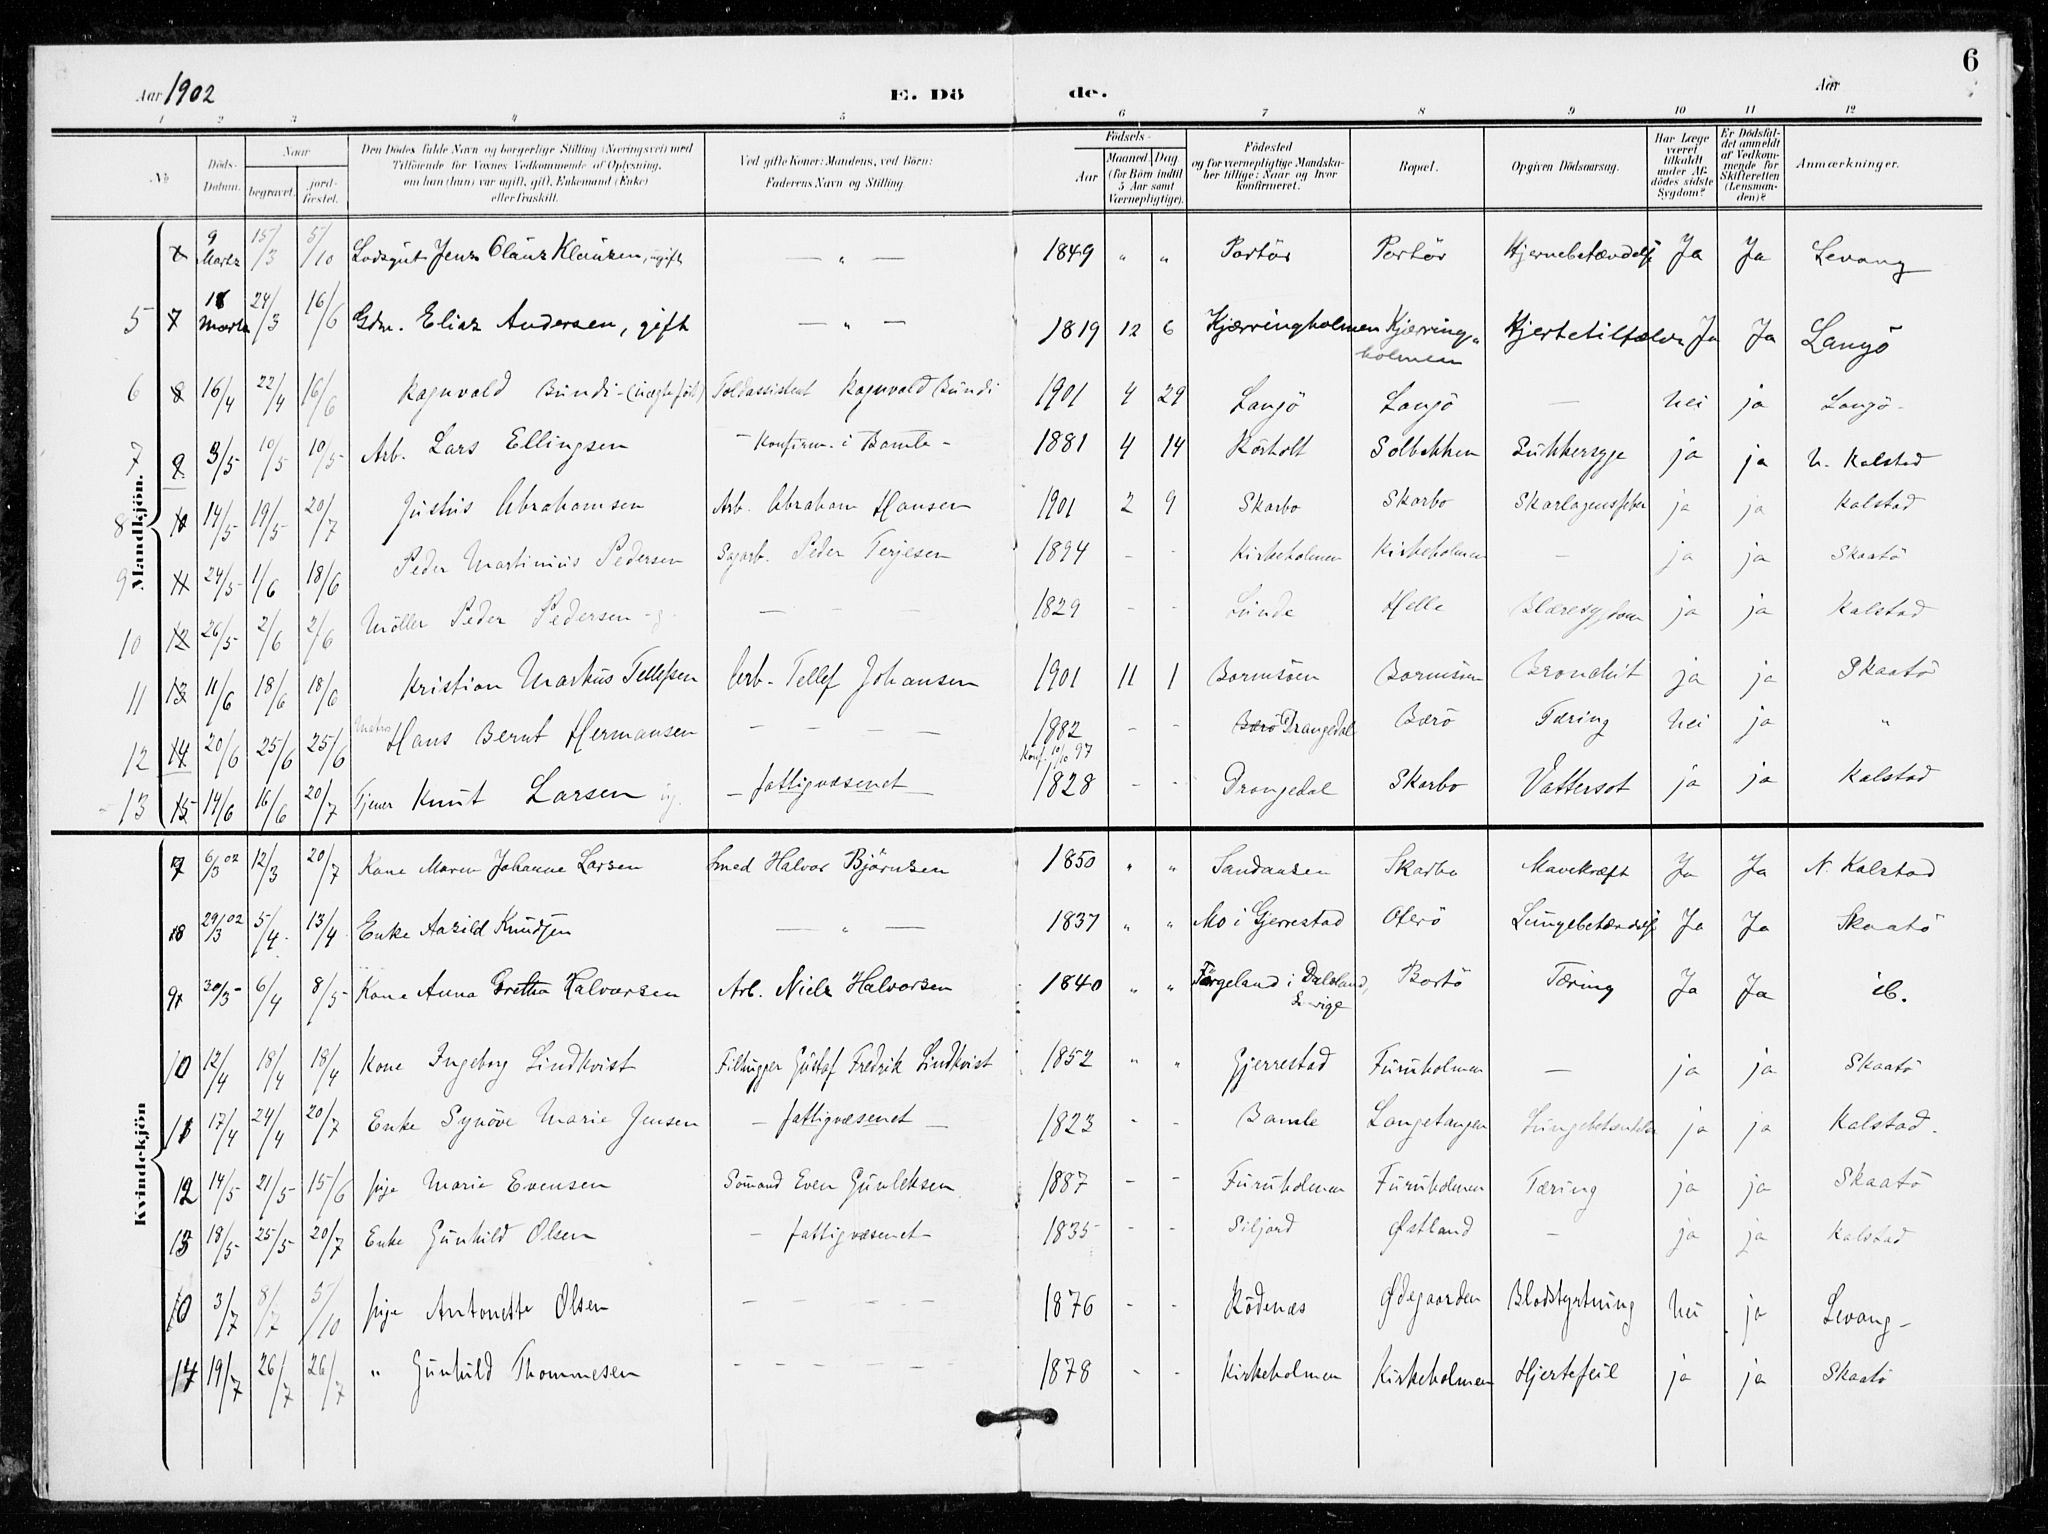 6
Aar 1902 E. Dö de. Aar
1 2 3 4 5 6 7 8 9 10 11 12
No Döds-Datum. Naar begravet. jord-fæstet. Den Dödes fulde Navn og borgerlige Stilling (Næringsvei) med Tilföiende for Voxnes Vedkommende af Oplysning, om han (hun) var ugift, gift, Enkemand (Enke) eller fraskilt. Ved gifte Koner: Mandens, ved Börn: Faderens Navn og Stilling. Födsels- Aar Maaned. Dag. (for Börn indtil 5 Aar samt Værnepligtige). Födested og for værnepligtige Mandska-ber tillige: Naar og hvor konfirmeret. Bopæl. Opgiven Dödsaarsag. Har Læge været tilkaldt under Af-dødes sidste Sygdom? Er Dödsfal-det anmeldt af Vedkom-mende for Skifteretten (Lensman-den)? Anmærkninger.
Mandkjön.
9 Marts 15/3 5/10 Lodsgut Jens Claus Klausen, ugift — „ — 1849 „ „ Portör Portör Hjernebetændelse Ja Ja Levang
5 7 18 Marts 24/3 16/6 Gdm. Elias Andersen, gift — „ — 1819 12 6 Kjærringholmen Kjærring„holmen Hjertetilfælde Ja Ja Langö
6 8 16/4 22/4 16/6 Ragnvald Bundi - (uægtefött) Toldassistent Ragnvald Bundi 1901 4 29 Langö Langö — nei ja Langö -
7 9 3/5 10/5 10/5 Arb. Lars Ellingsen - Konfirm. i Bamle - 1881 4 14 Rörholt Solbakken Sukkersyge ja ja N. Kalstad
8 10 14/5 19/5 20/7 Justus Abrahamsen Arb. Abraham Hansen 1901 2 9 Skarbo Skarbo Skarlagensfeber ja ja Kalstad
9 11 24/5 1/6 18/6 Peder Martinius Pedersen Sagarb. Peder Terjesen 1894 - - Kirkeholmen Kirkeholmen — ja ja Skaatö
10 12 26/5 2/6 2/6 Möller Peder Pedersen - g. — — — 1829 - - Lunde Helle Blæresygdom ja ja Kalstad
11 13 11/6 18/6 18/6 Kristian Markus Tellefsen Arb. Tellef Johansen 1901 11 1 Bormsöen Bormsöen Bronchit ja ja Skaatö
12 14 20/6 25/6 25/6 Matros Hans Bernt Hermansen - - - - 1882 - - Bærö Drangedal Bærö Tæring nei ja „
Konf. 10/10 97
-13 15 14/6 16/6 20/7 Tjener Knut Larsen ug. - fattigvæsenet - 1828 - - Drangedal Skarbo Vattersot ja ja Kalstad
Kvindekjön
7 6/3 02 12/3 20/7 Kone Maren Johanne Larsen Smed Halvor Björnsen 1850 „ „ Sandaasen Skarbo Mavekræft Ja Ja N. Kalstad
18 29/3 02 5/4. 13/4 Enke Aasild Knudsen — „ — 1837 „ „ Mo i Gjerrestad Oterö Lungebetændelse Ja Ja Skaatö
9 30/3 6/4 8/5 Kone Anna Gretha Halvorsen Arb. Niels Halvorsen 1840 „ „ Färgeland i Dalsland, Sverige Bortö Tæring Ja Ja ib.
10 12/4 18/4 18/4 Kone Ingeborg Lindkvist Filhugger Gustaf Fredrik Lindkvist 1852 „ „ Gjerrestad Furuholmen — ja ja Skaatö
11 17/4 24/4 20/7 Enke Synöve Marie Jensen - fattigvæsenet - 1823 - - Bamle Langetangen Lungebetændelse ja ja Kalstad.
12 14/5 21/5 15/6 pige Marie Evensen Sömand Even Gunleksen 1887 - - Furuholmen Furuholmen Tæring ja ja Skaatö
13 18/5 25/5 20/7 Enke Gunhild Olsen - fattigvæsenet - 1835 - - Siljord Østland — ja ja Kalstad
10 3/7 8/7 5/10 pige Antonette Olsen - - - - 1876 - - Rödenæs Ødegaarden Blodstyrtning nei ja Levang -
17 19/7 26/7 26/7 „ Gunhild Thommesen - - - - 1878 - - Kirkeholmen Kirkeholmen Hjertefeil ja ja Skaatö